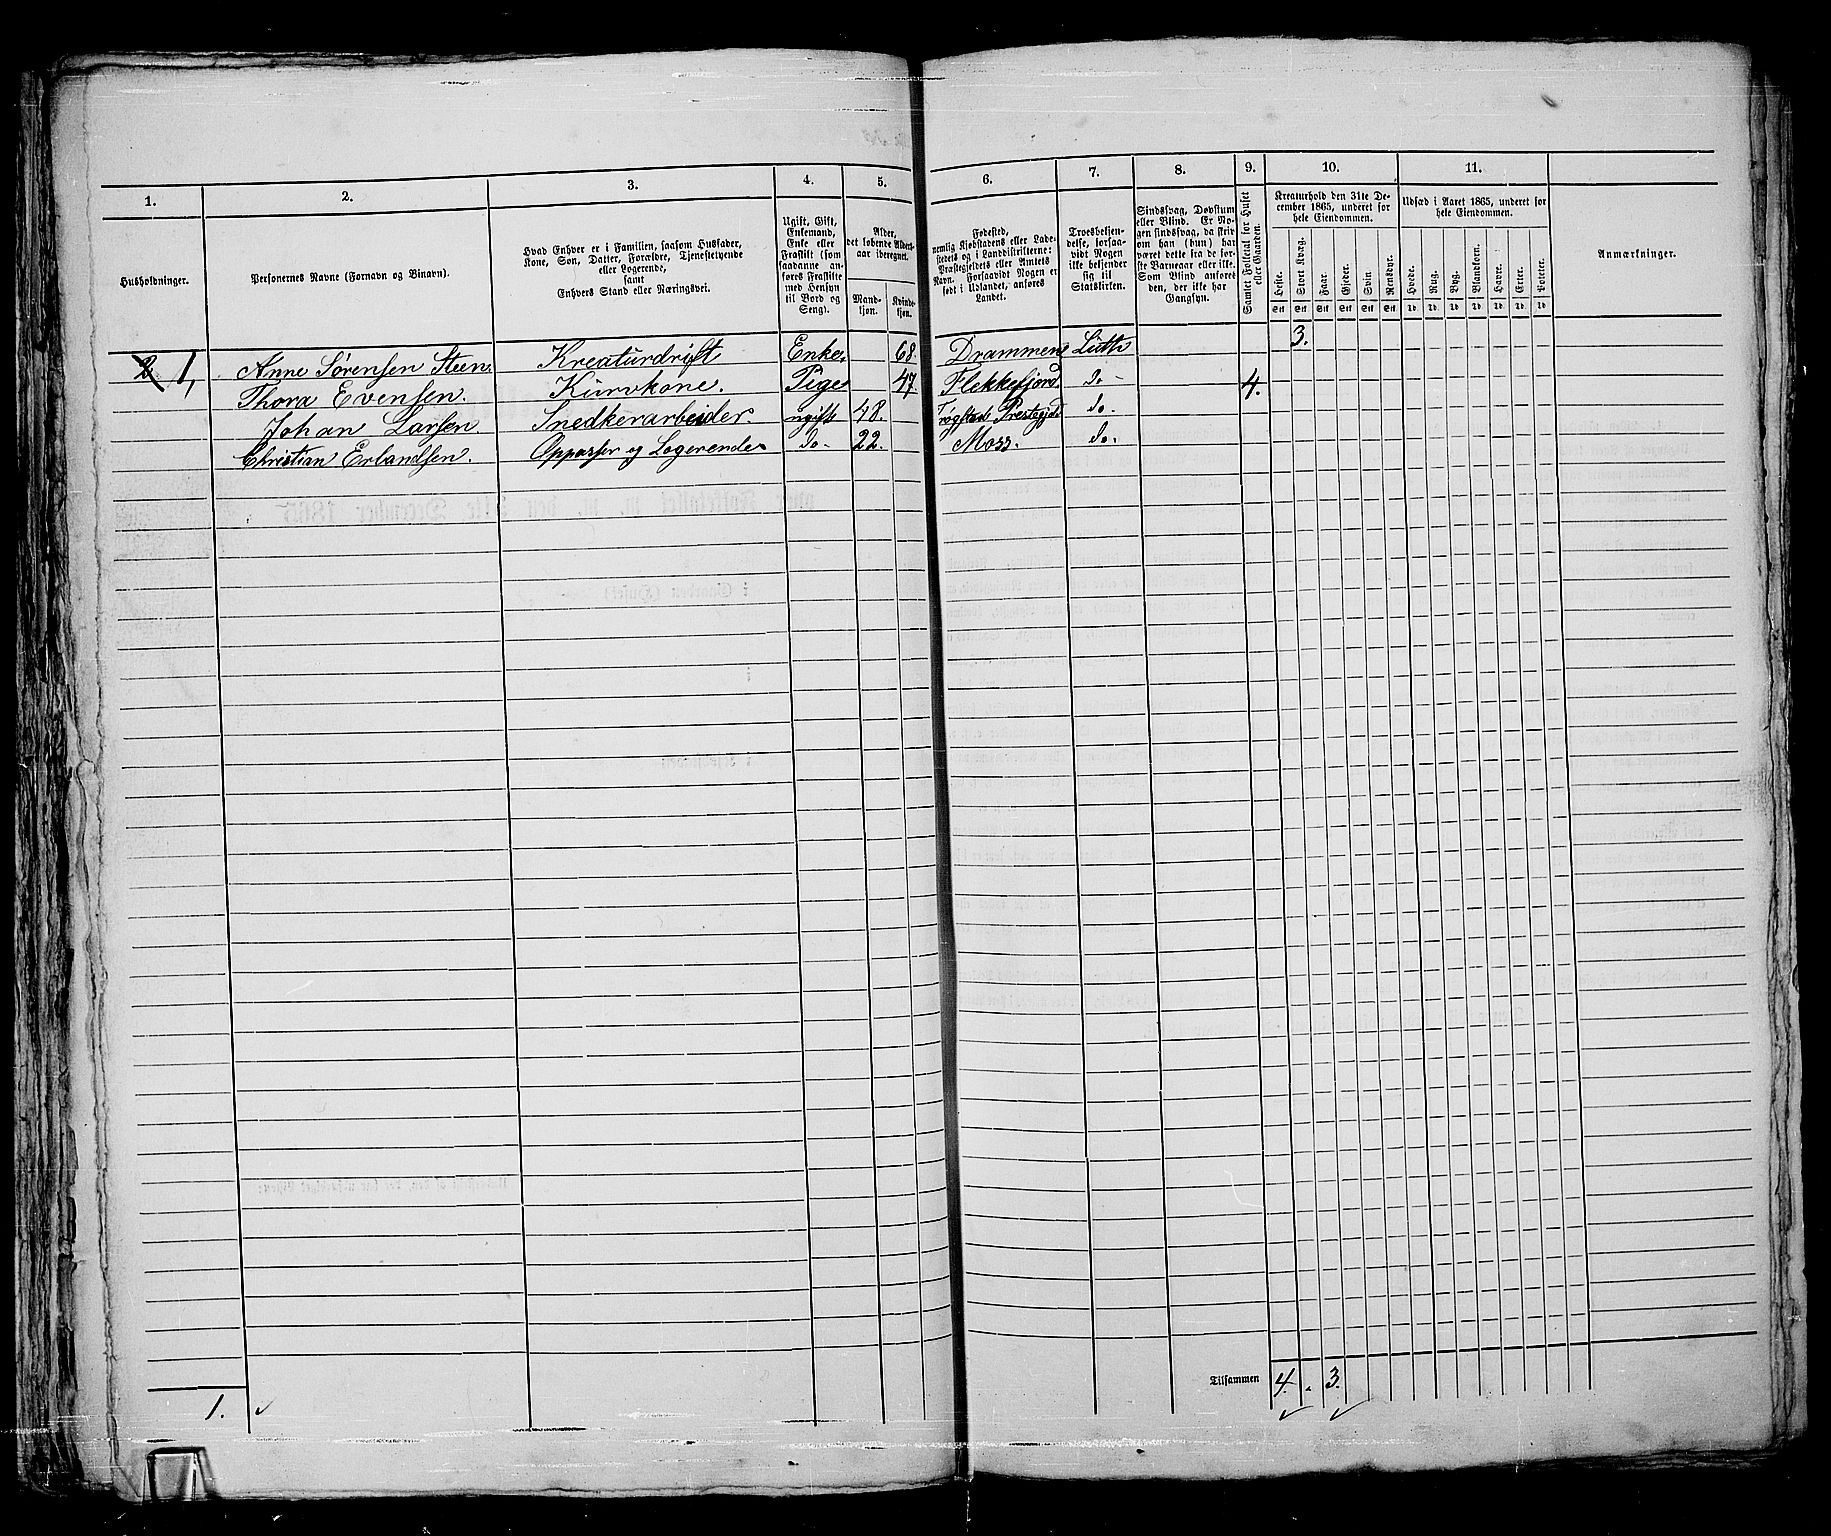 1.
2.
3.
4.
5.
6.
7.
8.
9.
10.
11.
Husholdninger.
Personernes Navne (Fornavn og Binavn).
Hvad Enhver er i Familien, saasom Husfader,
Kone, Søn, Datter, Forældre, Tjenestetyende
eller Logerende,
samt
Enhvers Stand eller Næringsvei.
Ugift, Gift,
Enkemand,
Enke eller
Fraskilt (som
saadanne an-
føres Fraskilte
med Hensyn
til Bord og
Seng).
Alder,
det løbende Alders-
aar iberegnet.
Mand-
kjøn.
Kvinde-
kjøn.
Fødested,
nemlig Kjøbstadens eller Lade-
stedets og i Landdistrikterne:
Præstegjeldets eller Amtets
Navn. Forsaavidt Nogen er
født i Udlandet, anføres
Landet.
Troesbekjen-
delse, forsaa-
vidt Nogen
ikke bekjender
sig til
Statskirken.
Sindssvag, Døvstum
eller Blind. Er No-
gen sindssvag, da skriv
om han (hun) har
været dette fra de før-
ste Barneaar eller ikke.
Som Blind anføres
den, der ikke har
Gangsyn.
Samlet Folketal for Huset
eller Gaarden.
Kreaturhold den 31te De-
cember 1865, underet for
hele Eiendommen.
Heste.
Stort Kvæg.
Faar.
Gjeder.
Svin.
Rensdyr.
Udsæd i Aaret 1865, underet for
hele Eiendommen.
Hvede.
Rug.
Byg.
Blandkorn.
Havre.
Erter.
Poteter.
Anmærkninger.
2 1, Anne Sørensen Steen. Kreaturdrift Enke. 68. Drammen Luth 3.
Thora Evensen. Kurvkone. Pige 47. Flekkefjord. do - 4.
Johan Larsen. Snedkerarbeider. ugift 48. Trøgstad Prestegjd do.
Christian Erlandsen. Oppasser og Logerende do - 22. Moss. do.
Tilsammen 4. 3.
1.